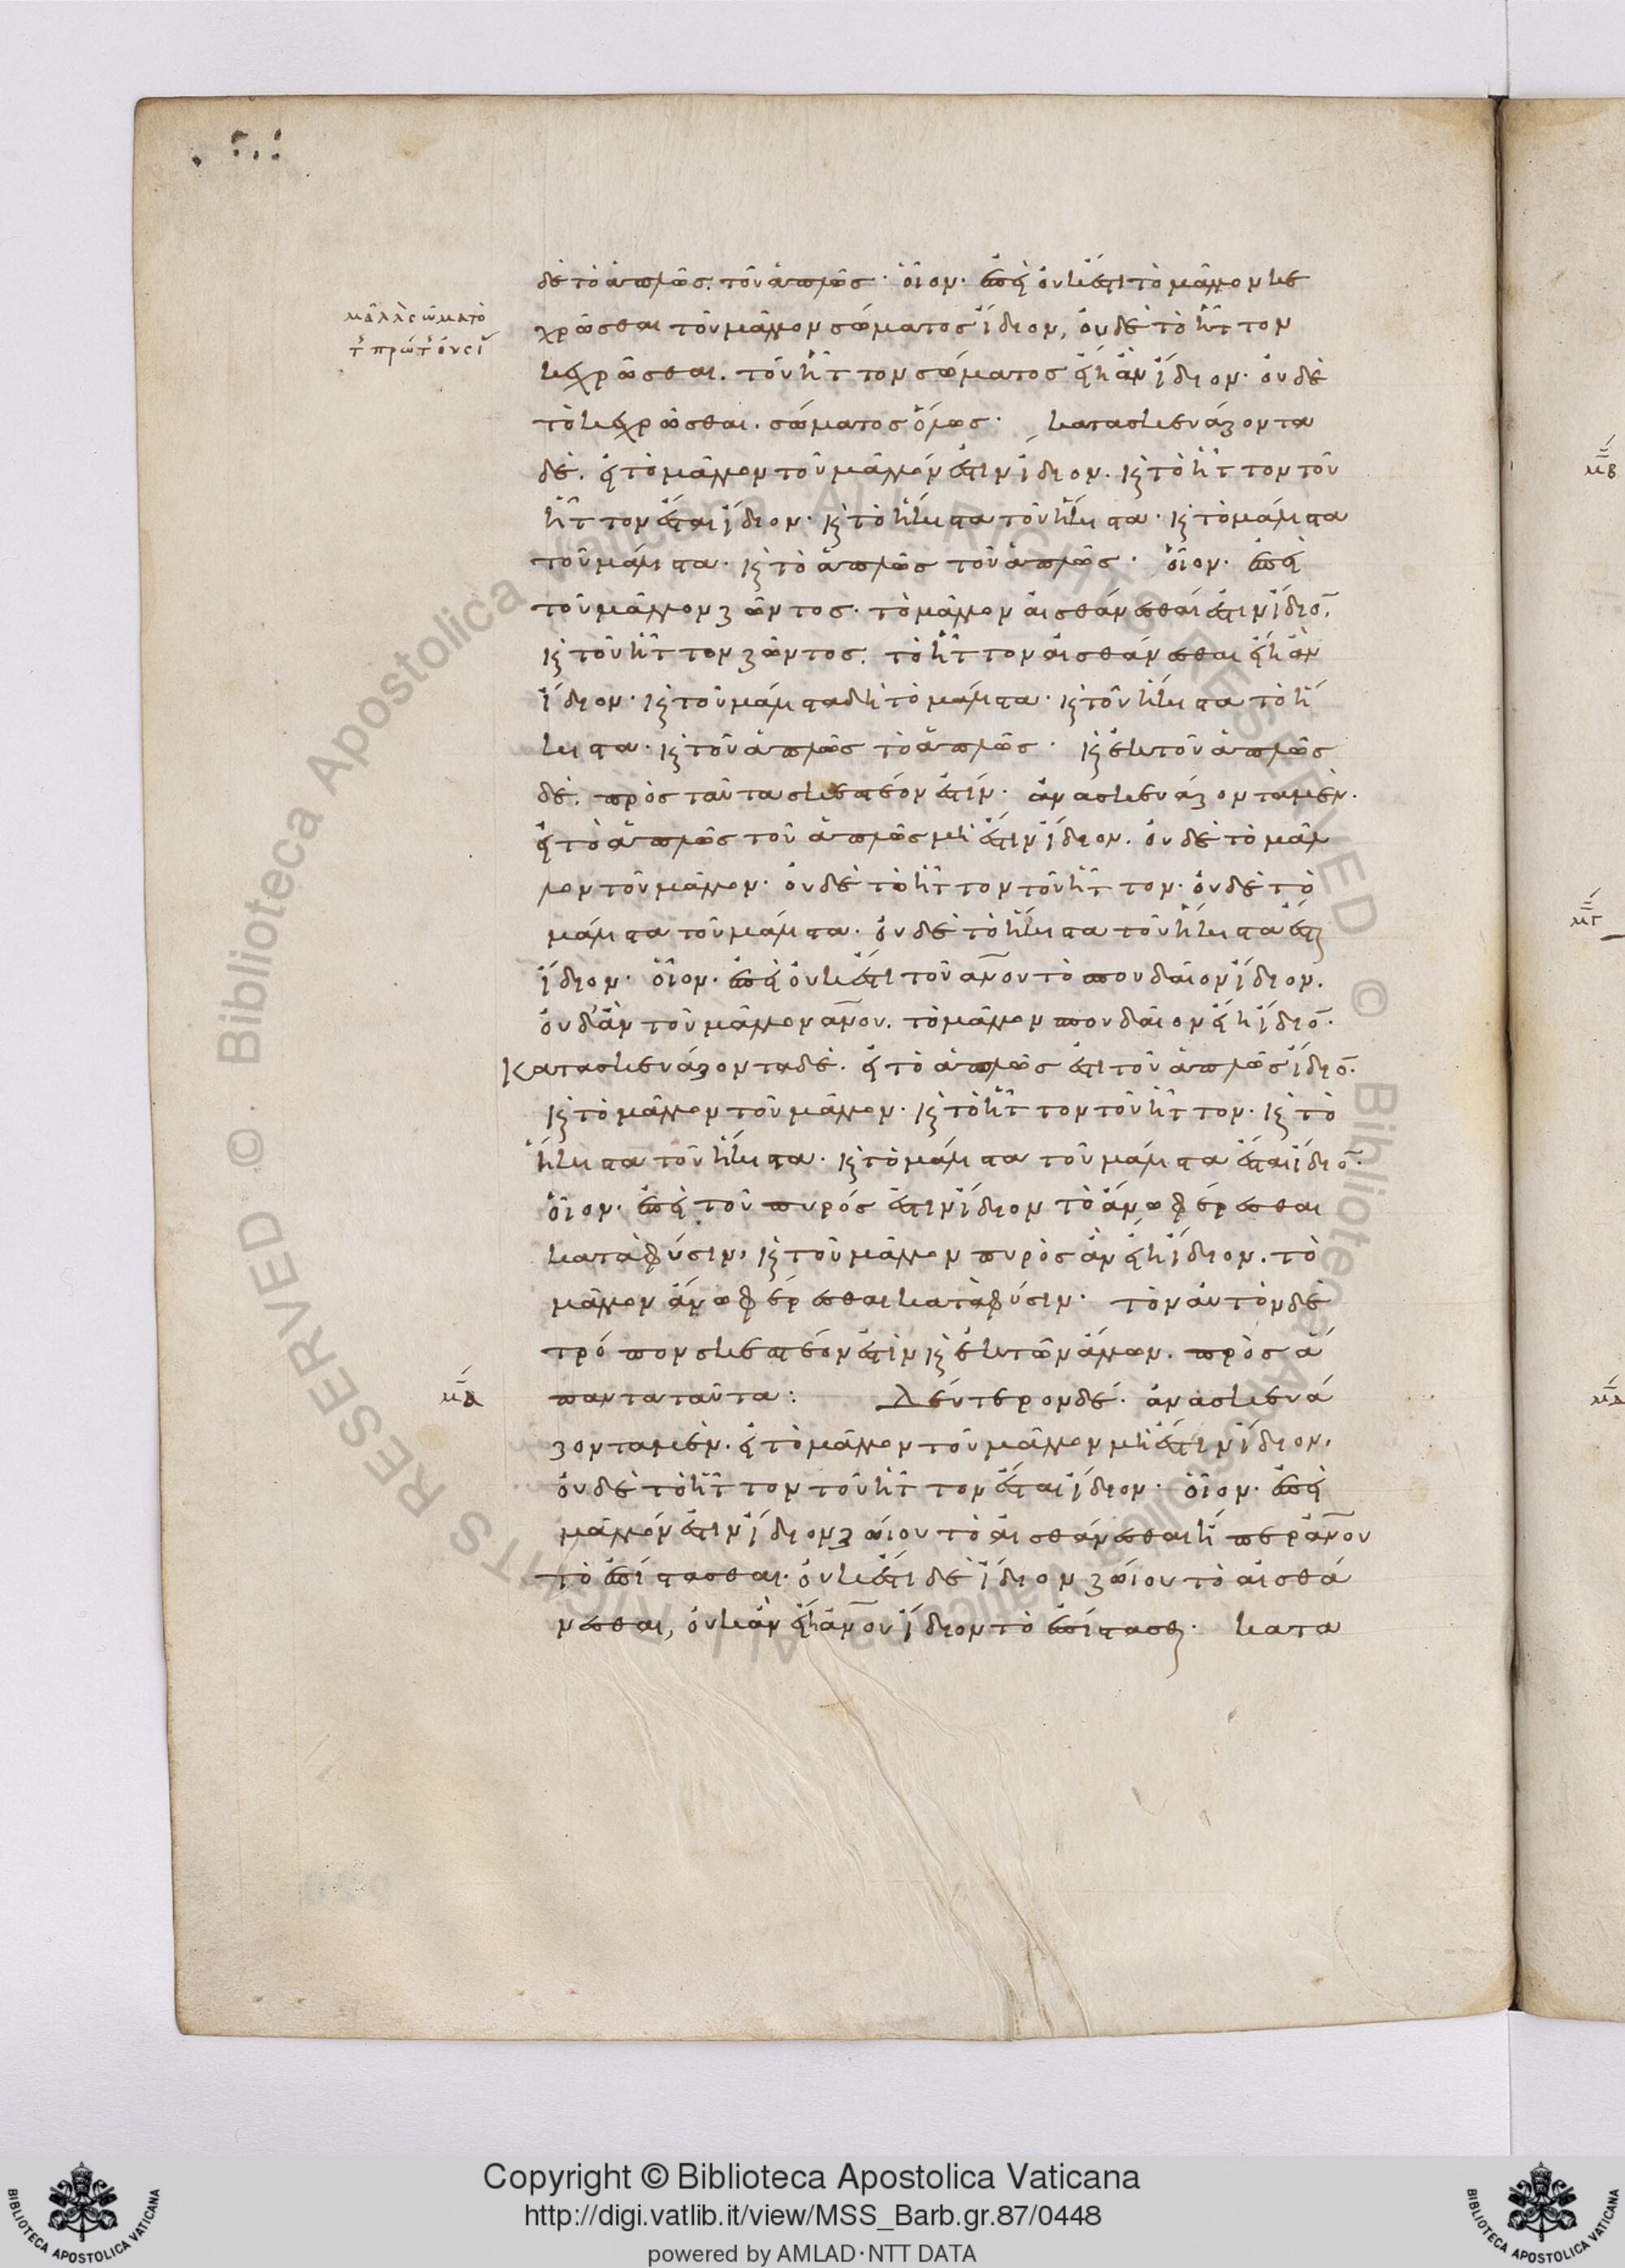 δὲ τὸ ἁπλῶς. τοῦ ἁπλῶς· οἷον. ἐπεὶ οὐκ ἔστι τὸ μᾶλλον κε
χρῶσθαι τοῦ μᾶλλον σώματος ἴδιον, οὐδὲ τὸ ἧττον
κεχρῶσθαι. τοῦ ἧττον σώματος εἴη ἂν ἴδιον· οὐδὲ
τὸ κεχρῶσθαι. σώματος ὅλως· κατασκευάζοντα
δέ. εἰ τὸ μᾶλλον τοῦ μᾶλλόν ἐστιν ἴδιον. καὶ τὸ ἧττον τοῦ
ἧττον ἔσται ἴδιον· καὶ τὸ ἥκιστα τοῦ ἥκιστα· καὶ τὸ μάλιστα
τοῦ μάλιστα· καὶ τὸ ἁπλῶς τοῦ ἁπλῶς· οἷον. ἐπεὶ
τοῦ μᾶλλον ζῶντος. τὸ μᾶλλον αἰσθάνεσθαί ἐστιν ἴδιο̅.
καὶ τοῦ ἧττον ζῶντος. τὸ ἧττον αἰσθάνεσθαι εἴη ἂν
ἴδιον· καὶ τοῦ μάλιστα δὴ τὸ μάλιστα· καὶ τοῦ ἥκιστα τὸ ἥ
κιστα· καὶ τοῦ ἁπλῶς τὸ ἁπλῶς· καὶ ἐκ τοῦ ἁπλῶς
δέ. πρὸς ταῦτα σκεπτέον ἐστίν· ἀνασκευάζοντα μέν.
εἰ τὸ ἁπλῶς τοῦ ἁπλῶς μὴ ἔστιν ἴδιον. οὐδὲ τὸ μᾶλ
λον τοῦ μᾶλλον· οὐδὲ τὸ ἧττον τοῦ ἧττον· οὐδὲ τὸ
μάλιστα τοῦ μάλιστα· οὐδὲ τὸ ἥκιστα τοῦ ἥκιστα ἔσται
ἴδιον· οἷον. ἐπεὶ οὐκ ἔστι τοῦ ἀν̅ου τὸ σπουδαῖον ἴδιον.
οὐδ' ἂν τοῦ μᾶλλον ἀν̅ου. τὸ μᾶλλον σπουδαῖον εἴη ἴδιο̅·
Κατασκευάζοντα δέ. εἰ τὸ ἁπλῶς ἐστι τοῦ ἁπλῶς ἴδιο̅·
καὶ τὸ μᾶλλον τοῦ μᾶλλον· καὶ τὸ ἧττον τοῦ ἧττον· καὶ τὸ
ἥκιστα τοῦ ἥκιστα· καὶ τὸ μάλιστα τοῦ μάλιστα ἔσται ἴδιο̅·
οἷον. ἐπεὶ τοῦ πυρός ἐστιν ἴδιον τὸ ἄνω φέρεσθαι
κατὰ φύσιν, καὶ τοῦ μᾶλλον πυρὸς ἂν εἴη ἴδιον. τὸ
μᾶλλον ἄνω φέρεσθαι κατὰ φύσιν· τὸν αὐτὸν δὲ
τρόπον σκεπτέον ἐστὶν καὶ ἐκ τῶν ἄλλων. πρὸς ἅ
παντα ταῦτα: Δεύτερον δέ. ἀνασκευά
ζοντα μέν. εἰ τὸ μᾶλλον τοῦ μᾶλλον μὴ ἔστιν ἴδιον,
οὐδὲ τὸ ἧττον τοῦ ἧττον ἔσται ἴδιον· οἷον. ἐπεὶ
μᾶλλόν ἐστιν ἴδιον ζώιου τὸ αἰσθάνεσθαι ἤ περ ἀν̅ου
τὸ ἐπίστασθαι. οὐκ ἔστι δὲ ἴδιον ζώιου τὸ αἰσθά
νεσθαι, οὐκ ἂν εἴη ἀν̅ου ἴδιον τὸ ἐπίστασθαι· κατα
Copyright © Biblioteca Apostolica Vaticana
http://digi.vatlib.it/view/MSS_Barb.gr.87/0448
powered by AMLAD·NTT DATA